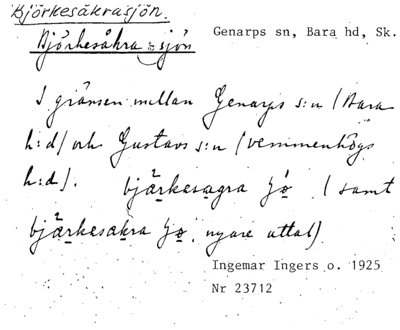 Björkesåkrasjön.
Björkesåkra sjön
Genarps sn, Bara hd, Sk.
I gränsen mellan Genarps s:n (Bara
h:d) och Gustavs s:n (Vemmenhögs
h:d). bjärkesagra sjö (samt
bjärkesakra sjö, nyare uttal).
Ingemar Ingers o. 1925
Nr 23712